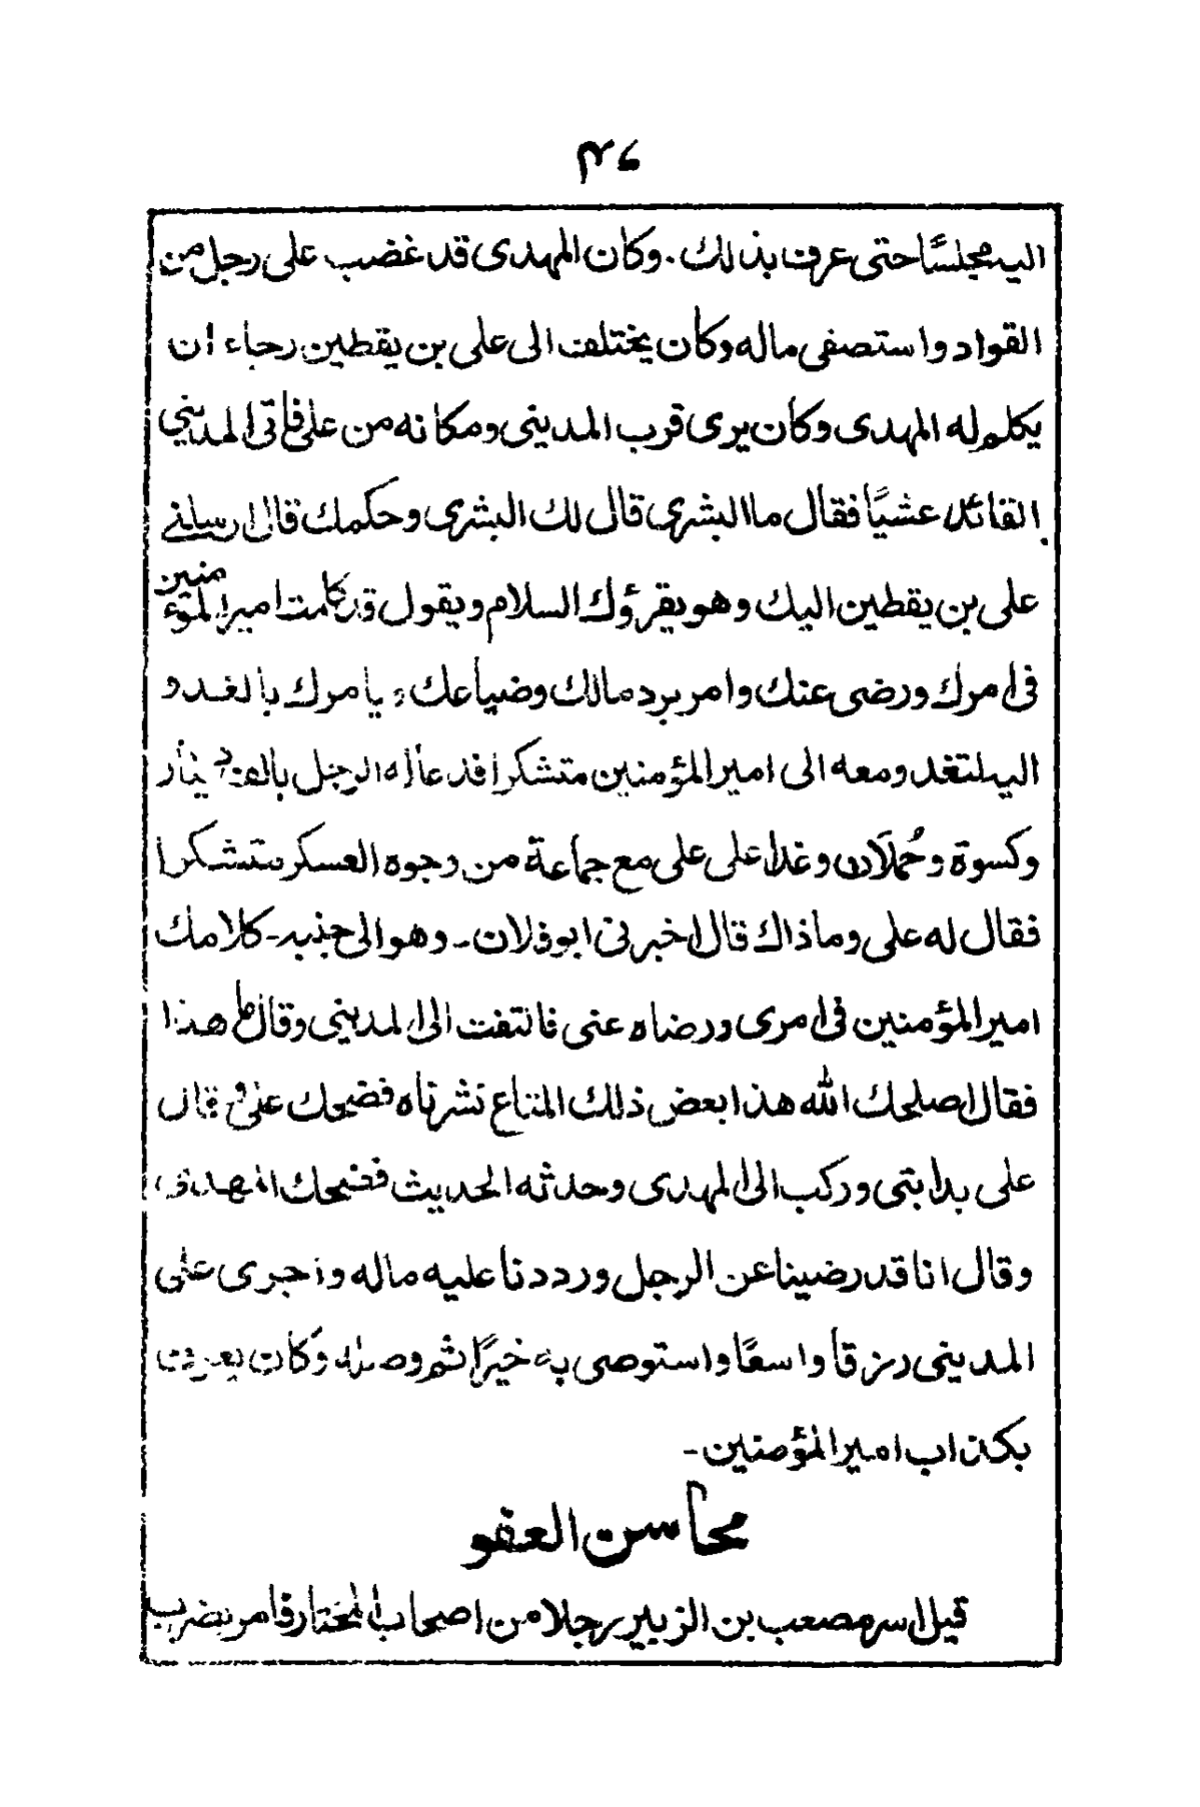 ٤٦
اليه مجلسًا حتى عرف بذلك. وكان المهدى قد غضب على رجل من
القواد واستصفى ماله وكان يختلف الى على بن يقطين رجاء ان
يكلم له المهدى وكان يرى قرب المدينى ومكانه من على فاتى المديني
القائد عشيًا فقال ما البشرى قال لك البشرى وحكمك قال ارسلنے
على بن يقطين اليك وهو يقرؤك السلام ويقول قد كلمت امير المؤمنين
فى امرك ورضى عنك وامر برد مالك وضياعك ويامرك بالغدو
اليه لتغد ومعه الى امير المؤمنين متشكرا فدعا له الرجل بالف دينار
وكسوة وحُملَان وغدا على على مع جماعة من وجوه العسكر متشكرا
فقال له على وما ذاك قال اخبرنى ابو فلان - وهو الى جنبه - كلامك
امير المؤمنين فى امرى ورضاه عنى فالتفت الى المدينى وقال ما هذا
فقال اصلحك الله هذا بعض ذلك المتاع نشرناه فضحك على وقال
على بدابتى وركب الى المهدى وحدثه الحديث فضحك المهدى
وقال انا قد رضينا عن الرجل ورددنا عليه ماله واجرى على
المدينى رزقا واسعًا واستوصى به خيرًا ثم وصله وكان يعرف
بكذاب امير المؤمنين -
محاسن العفو
قيل اسر مصعب بن الزبير رجلا من اصحاب المختار فامر بضرب